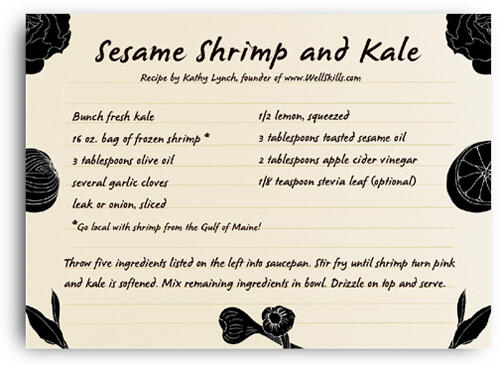 Sesame Shrimp and Kale
Recipe by Kathy Lynch, founder of www.WellSkills.com
Bunch fresh kale
16 oz. bag of frozen shrimp *
3 tablespoons olive oil
several garlic cloves
leak or onion, sliced
*Go local with shrimp from the Gulf of Maine!
1/2 lemon, squeezed
3 tablespoons toasted sesame oil
2 tablespoons apple cider vinegar
1/8 teaspoon stevia leaf (optional)
Throw five ingredients listed on the left into saucepan. Stir fry until shrimp turn pink
and kale is softened. Mix remaining ingredients in bowl. Drizzle on top and serve.